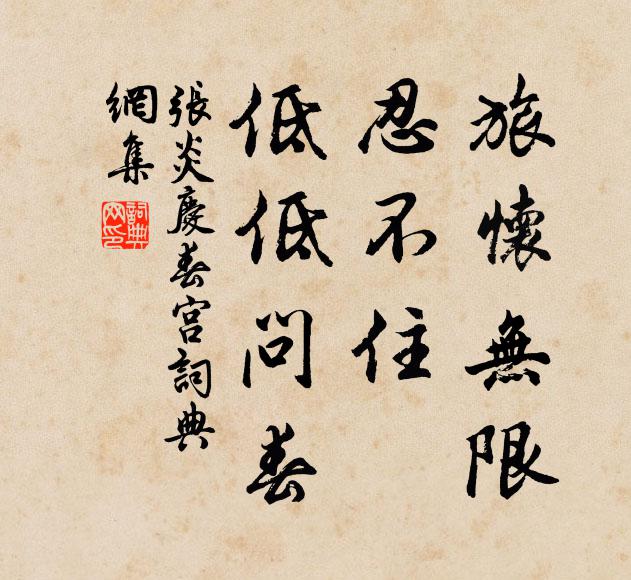 旅懷無限
忍不住
低低問春
張炎慶春宮詞典
網集
詞典
网印